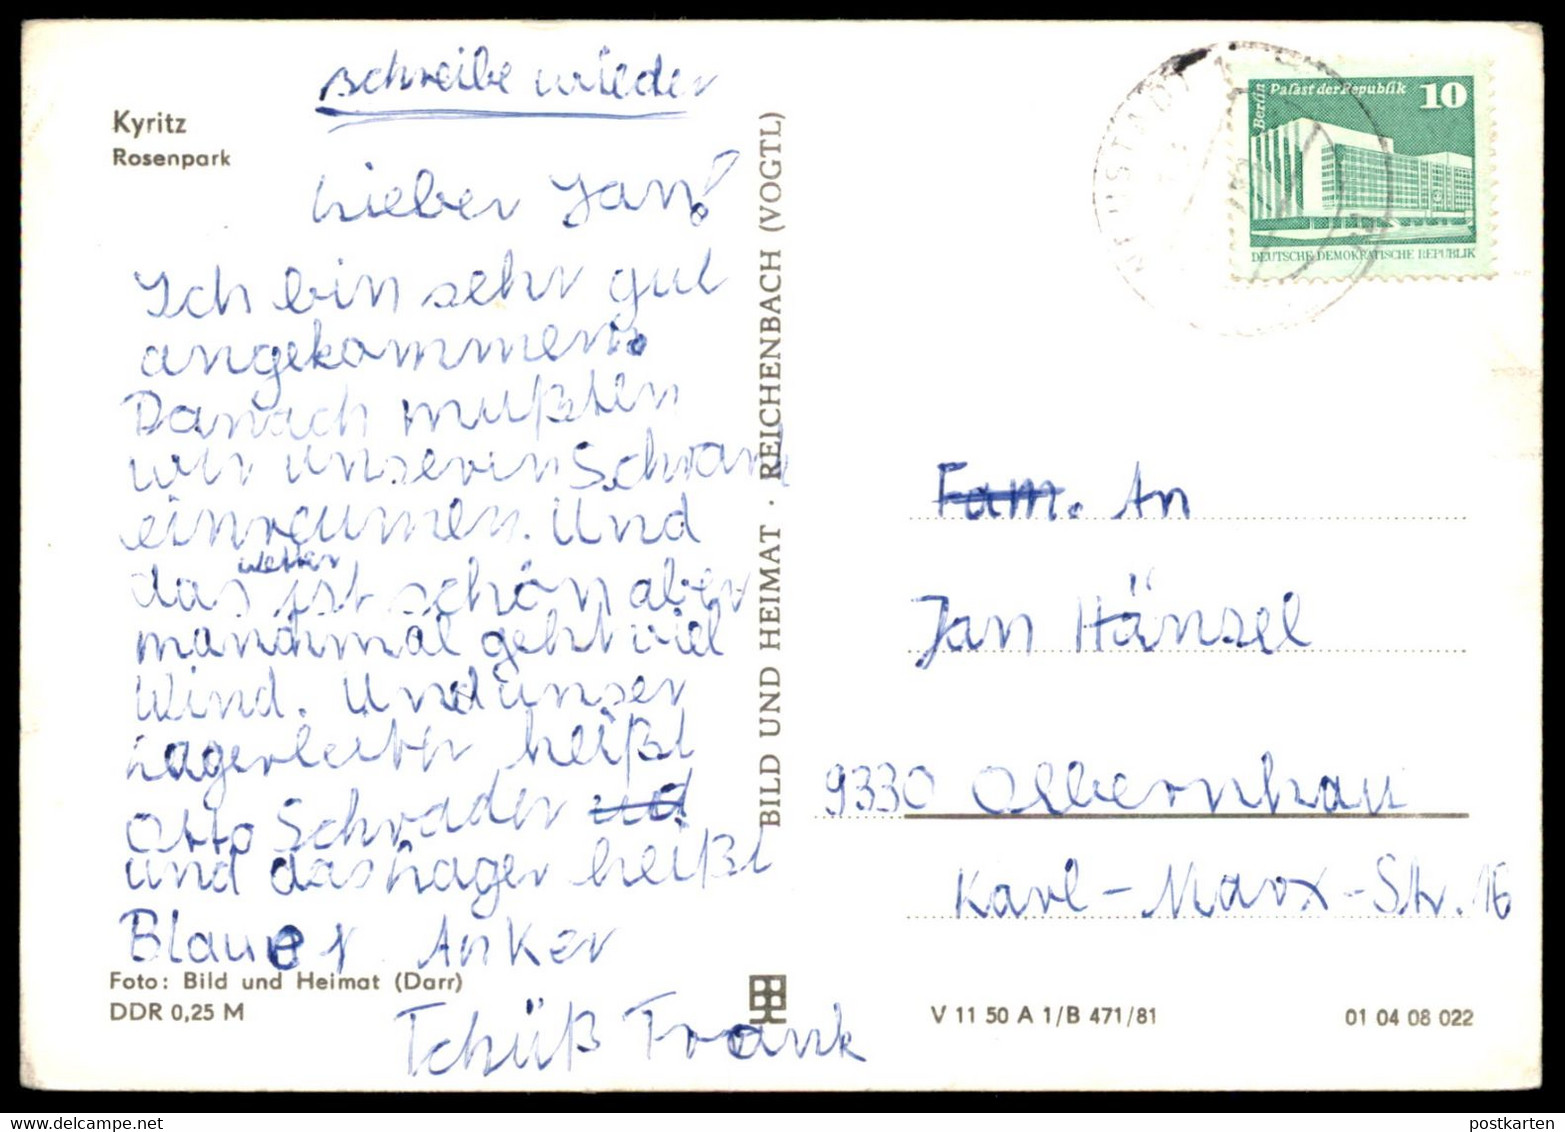 schreibe wieder
Kyritz
Rosenpark
Lieber Jan!
Ich bin sehr gut
angekommen.
Danach mußten
wir unseren Schrank
einreumen. Und
das wetter ist schön aber
manchmal geht viel
Wind. Und unser
Lagerleiter heißt
Otto Schrader und
und das Lager heißt
Blauer Anker
Tchüß Frank
Foto: Bild und Heimat (Darr)
DDR 0,25 M
BILD UND HEIMAT · REICHENBACH (VOGTL)
Berlin
Palast der Republik 10
DEUTSCHE DEMOKRATISCHE REPUBLIK
NEUSTADT
Fam. An
Jan Hänsel
9330 Olbernhau
Karl-Marx-Str. 16
V 11 50 A 1/B 471/81
01 04 08 022
postkarten